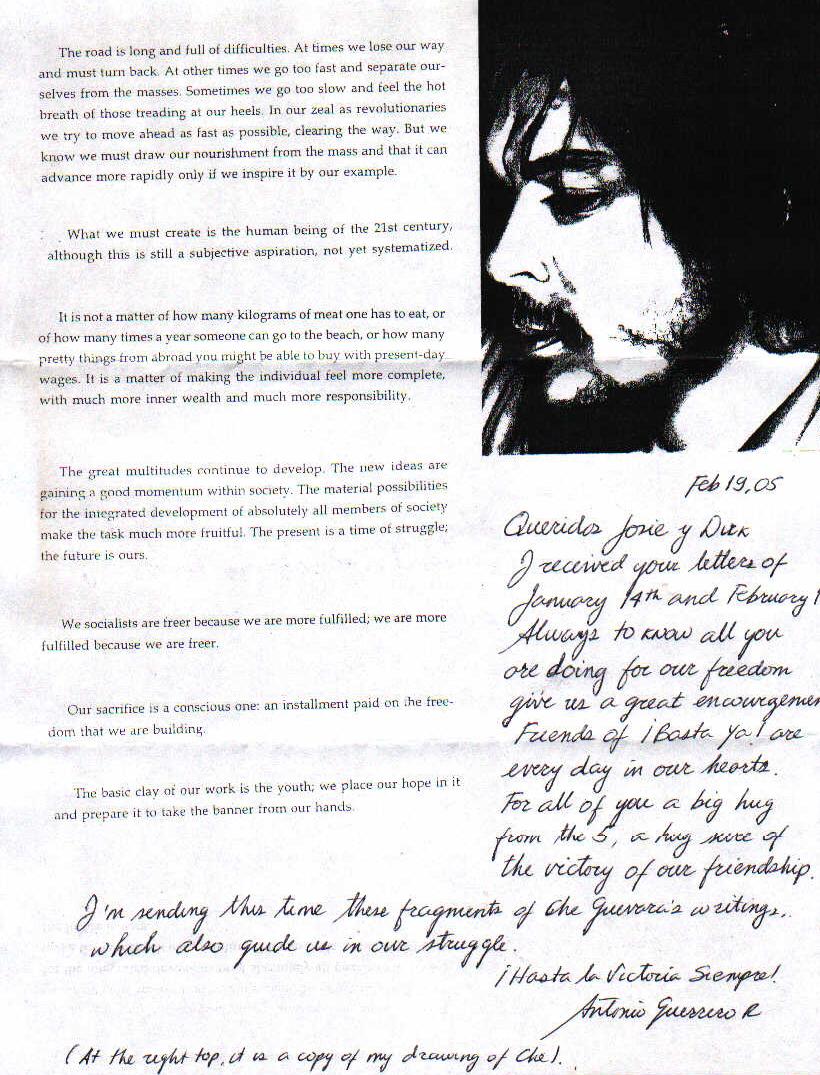 The road is long and full of difficulties. At times we lose our way
and must turn back. At other times we go too fast and separate our-
selves from the masses. Sometimes we go too slow and feel the hot
breath of those treading at our heels. In our zeal as revolutionaries
we try to move ahead as fast as possible, clearing the way. But we
know we must draw our nourishment from the mass and that it can
advance more rapidly only if we inspire it by our example.
What we must create is the human being of the 21st century,
although this is still a subjective aspiration, not yet systematized.
It is not a matter of how many kilograms of meat one has to eat, or
of how many times a year someone can go to the beach, or how many
pretty things from abroad you might be able to buy with present-day
wages. It is a matter of making the individual feel more complete,
with much more inner wealth and much more responsibility.
The great multitudes continue to develop. The new ideas are
gaining a good momentum within society. The material possibilities
for the integrated development of absolutely all members of society
make the task much more fruitful. The present is a time of struggle;
the future is ours.
We socialists are freer because we are more fulfilled; we are more
fulfilled because we are freer.
Our sacrifice is a conscious one: an installment paid on the free-
dom that we are building.
The basic clay of our work is the youth; we place our hope in it
and prepare it to take the banner from our hands.
Feb 19, 05
Queridos Josie y Dick
I received your letters of
January 14th and February 1
Always to know all you
are doing for our freedom
give us a great encourgemen
Friends of ¡Basta Ya! are
every day in our hearts.
For all of you a big hug
from the 5, a hug sure of
the victory of our friendship.
I'm sending this time these fragments of Che Guevara's writings,
which also guide us in our struggle.
¡Hasta la Victoria Siempre!
Antonio Guerrero R
(At the right top, it is a copy of my drawing of Che).